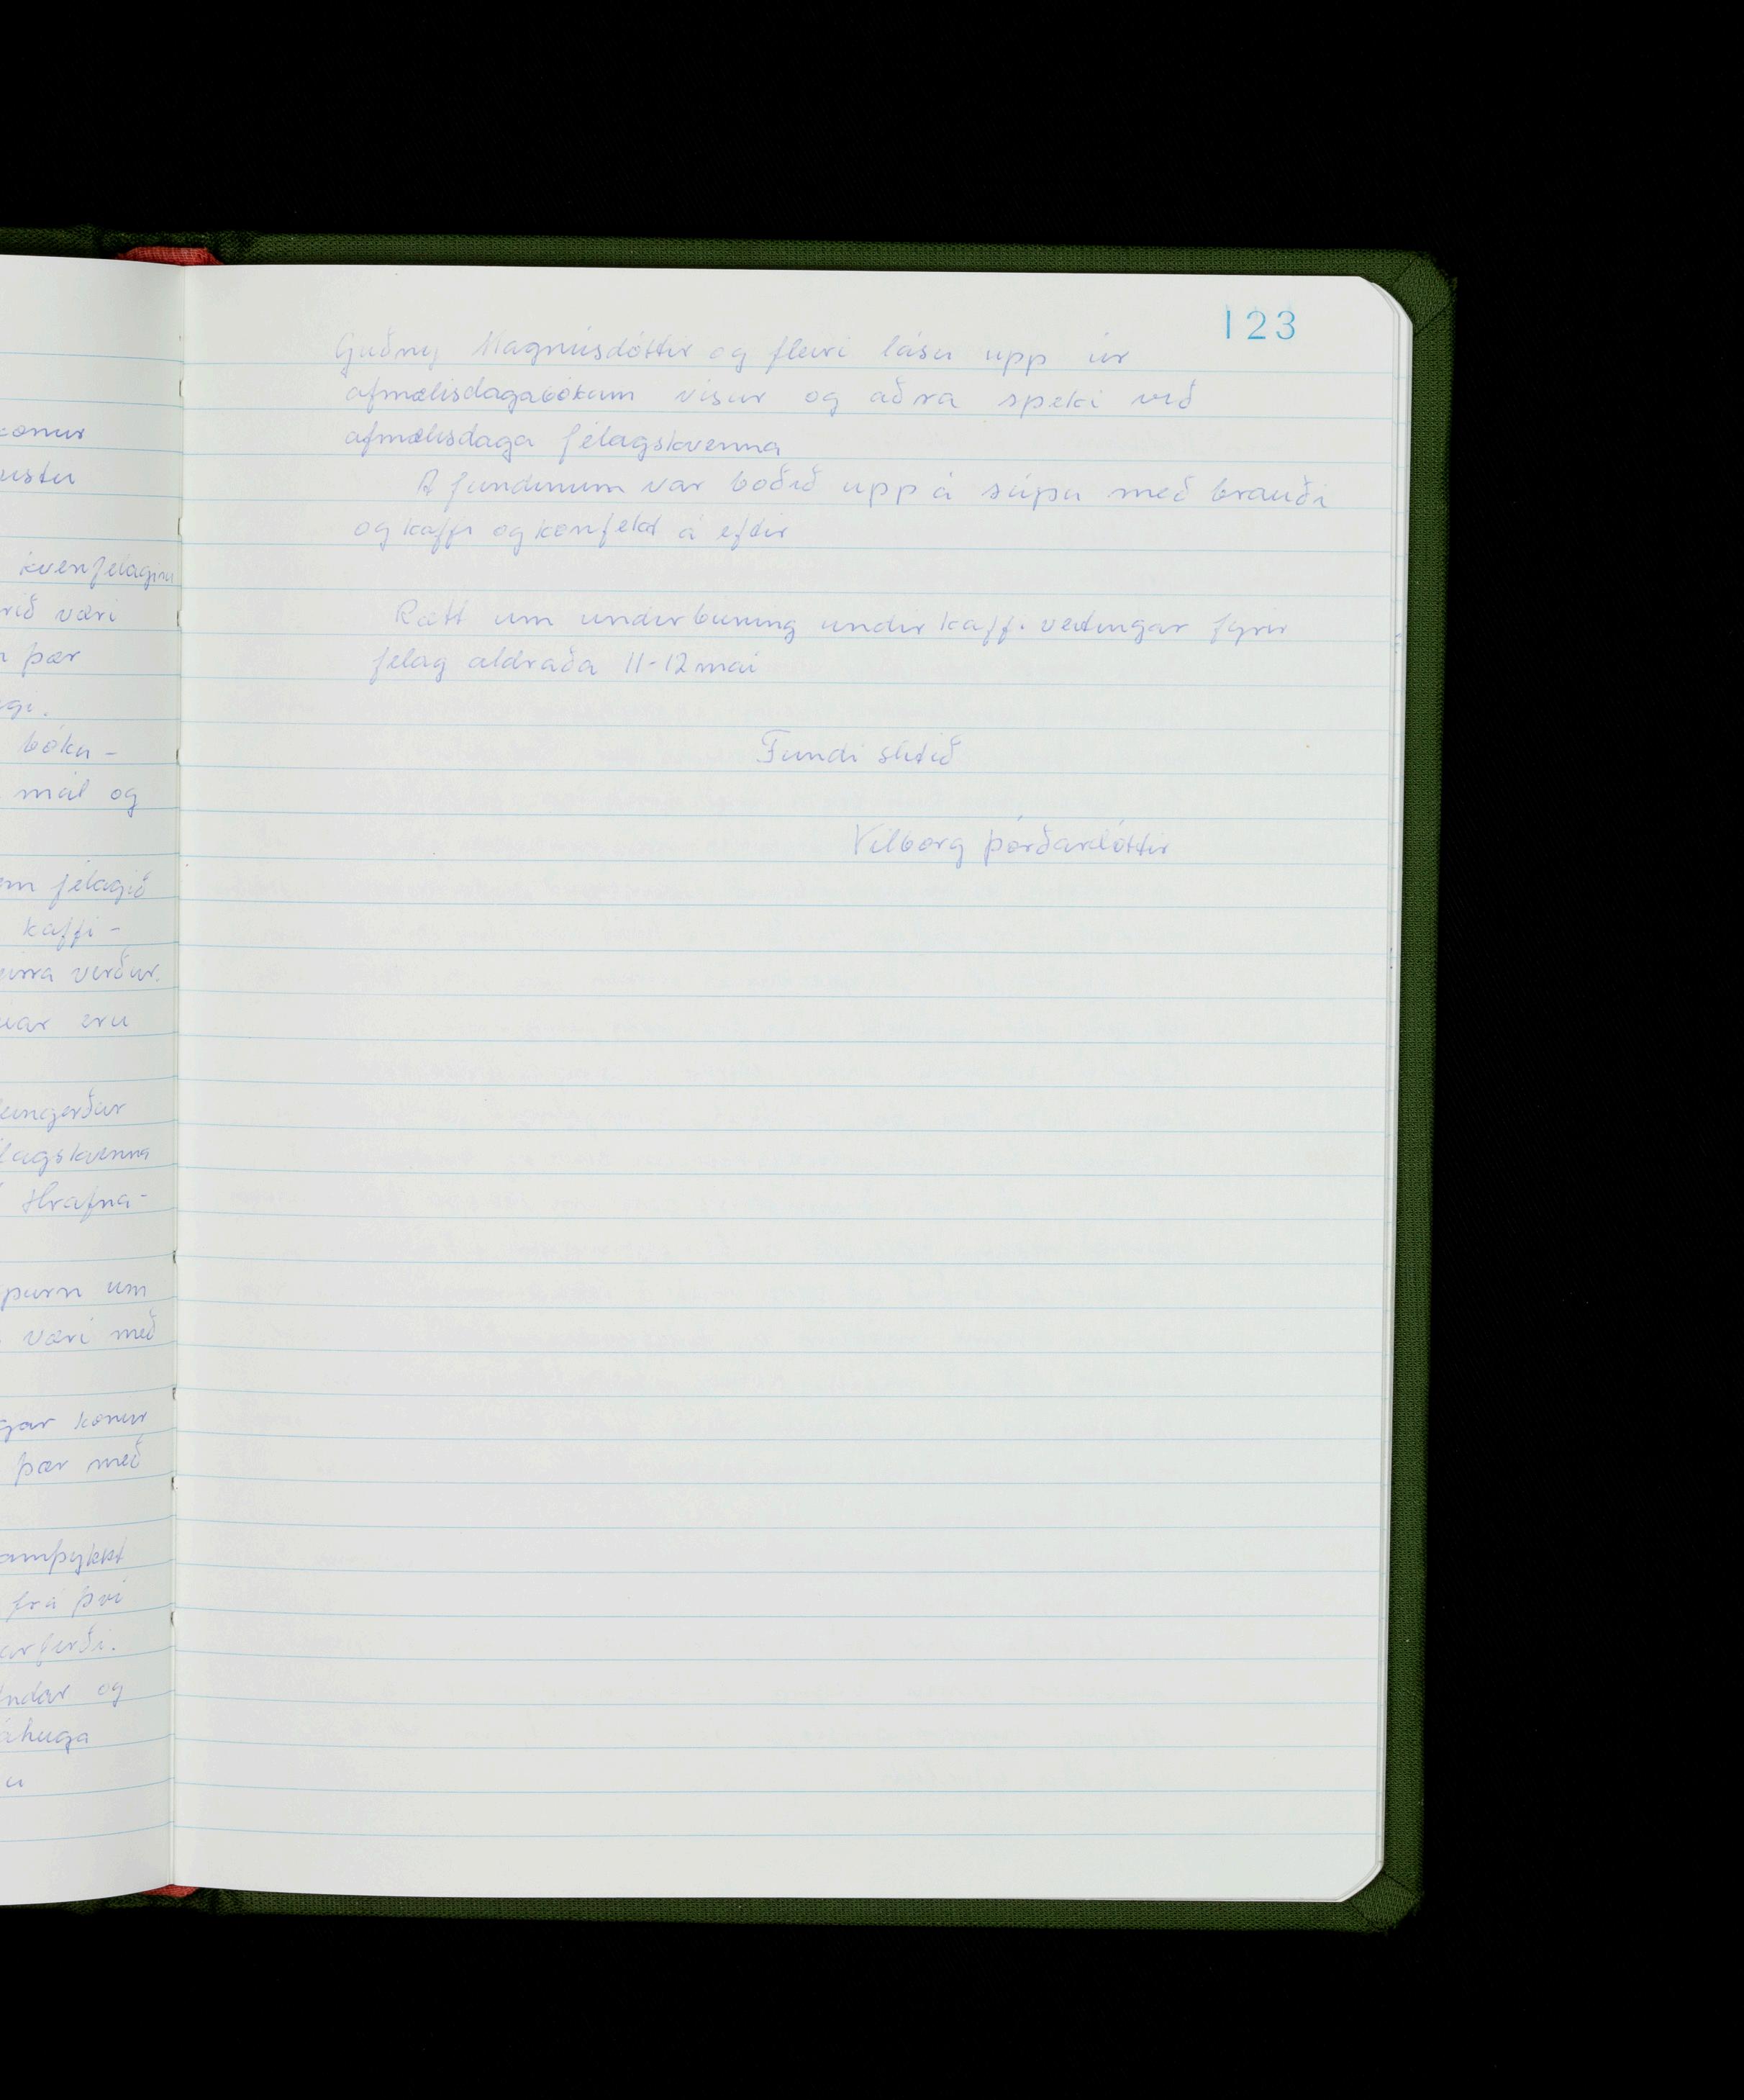 konur
kvenfélaginu
væri
þær
bóka-
mál og
félagið
kaffi-
verður.
eru
Hrafna-
um
væri með
konur
þær með
frá því
og
áhuga
123
Guðný Magnúsdóttir og fleiri lásu upp úr
afmælisdagabókum vísur og aðra speki við
afmælisdaga félagskvenna
Á fundinum var boðið upp á súpu með brauði
og kaffi og konfekt á eftir
Rætt um undirbúning undir kaffi veitingar fyrir
félag aldraða 11-12 maí
Fundi slitið
Vilborg Þórðardóttir